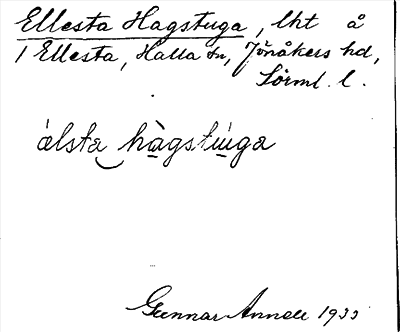 Ellesta Hagstuga, lht å
1 Ellesta, Halla sn, Jönåkers hd,
Sörml. l.
álsta hàgstuga
Gunnar Annell 1933